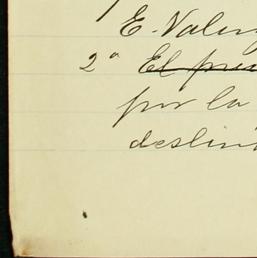 E. Valen
2º El pre
por la
deslin